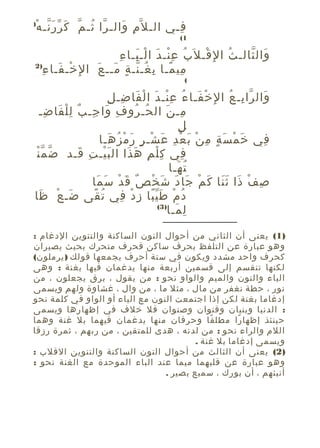 فِـي الـلَّامِ وَالـرَّا ثُـمَّ كَـرِّرَنَّـهْ(1)
(1)
وَالـثَّـالِـثُ الإِقْـلَابُ عِنْـدَ الْـبَـاءِ
مِيمًـا بِغُـنَّـةٍ مَــعَ الإِخْـفَـاءِ(2)
(
وَالـرَّابِـعُ الإِخْـفَـاءُ عِنْـدَ الْفَاضِـلِ
مِـنَ الحُـرُوفِ وَاجِـبٌ لِلْفَاضِـ
لِ
فِي خَمْسَةٍ مِنْ بَعْدِ عَشْـرٍ رَمْزُهَـا
فِي كِلْمِ هَذَا البَيْـتِ قَـد ضَّمَّنْ
تُهَـا
صِفْ ذَا ثَنَا كَمْ جَادَ شَخْصٌ قَدْ سَمَا
دُمْ طَيِّبًا زِدْ فِي تُقًى ضَـعْ ظَا
لِمَـا(3)
(1) يعني أن الثاني من أحوال النون الساكنة والتنوين الإدغام :
وهو عبارة عن التلفظ بحرف ساكن فحرف متحرك بحيث يصيران
كحرف واحد مشدد ويكون في ستة أحرف يجمعها قولك (يرملون)
لكنها تنقسم إلى قسمين أربعة منها يدغمان فيها بغنة : وهى
الياء والنون والميم والواو نحو : من يقول ، برق يجعلون ، من
نور ، حطة نغفر من مال ، مثلا ما ، من وال ، غشاوة ولهم ويسمى
إدغاما بغنة لكن إذا اجتمعت النون مع الياء أو الواو في كلمة نحو
: الدنيا وبنيان وقنوان وصنوان فلا خلاف في إظهارها ويسمى
حينئذ إظهارا مطلقا وحرفان منها يدغمان فيهما بلا غنة وهما
اللام والراء نحو : من لدنه ، هدى للمتقين ، من ربهم ، ثمرة رزقا
ويسمى إدغاما بلا غنة .
(2) يعنى أن الثالث من أحوال النون الساكنة والتنوين الاقلاب :
وهو عبارة عن قلبهما ميما عند الباء الموحدة مع الغنة نحو :
أنبئهم ، أن بورك ، سميع بصير .